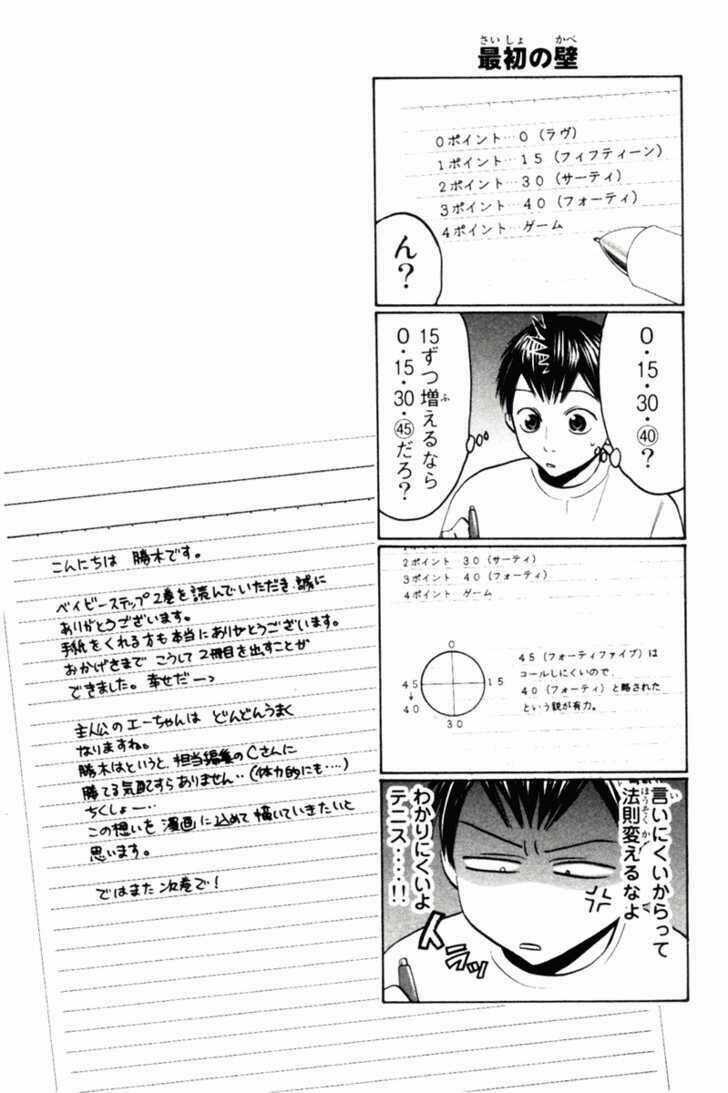 最初の壁
さいしょ かべ
0ポイント…0(ラヴ)
1ポイント…15(フィフティーン)
2ポイント…30(サーティ)
3ポイント…40(フォーティ)
4ポイント…ゲーム
ん?
0・15・30・㊵?
15ずつ増えるなら
ふ
0・15・30・㊺だろ?
2ポイント 30(サーティ)
3ポイント 40(フォーティ)
4ポイント ゲーム
0
15
30
45
↓
40
45(フォーティファイブ)は
コールしにくいので、
40(フォーティ)と略された
という説が有力。
言いにくいからって
い
法則変えるなよ
ほうそく か
わかりにくいよ
テニス…‥!!
イラッ
こんにちは 勝木です。
ベイビーステップ2巻を読んでいただき、誠に
ありがとうございます。
手紙をくれる方も本当にありがとうございます。
おかげさまで こうして2冊目を出すことが
できました。幸せだーっ
主人公のエーちゃんは どんどんうまく
なりますね。
勝木はというと、担当編集のCさんに
勝てる気配すらありません‥(体力的にも‥‥)
ちくしょー…
この想いを 漫画に込めて 描いていきたいと
思います。
ではまた 次巻で!